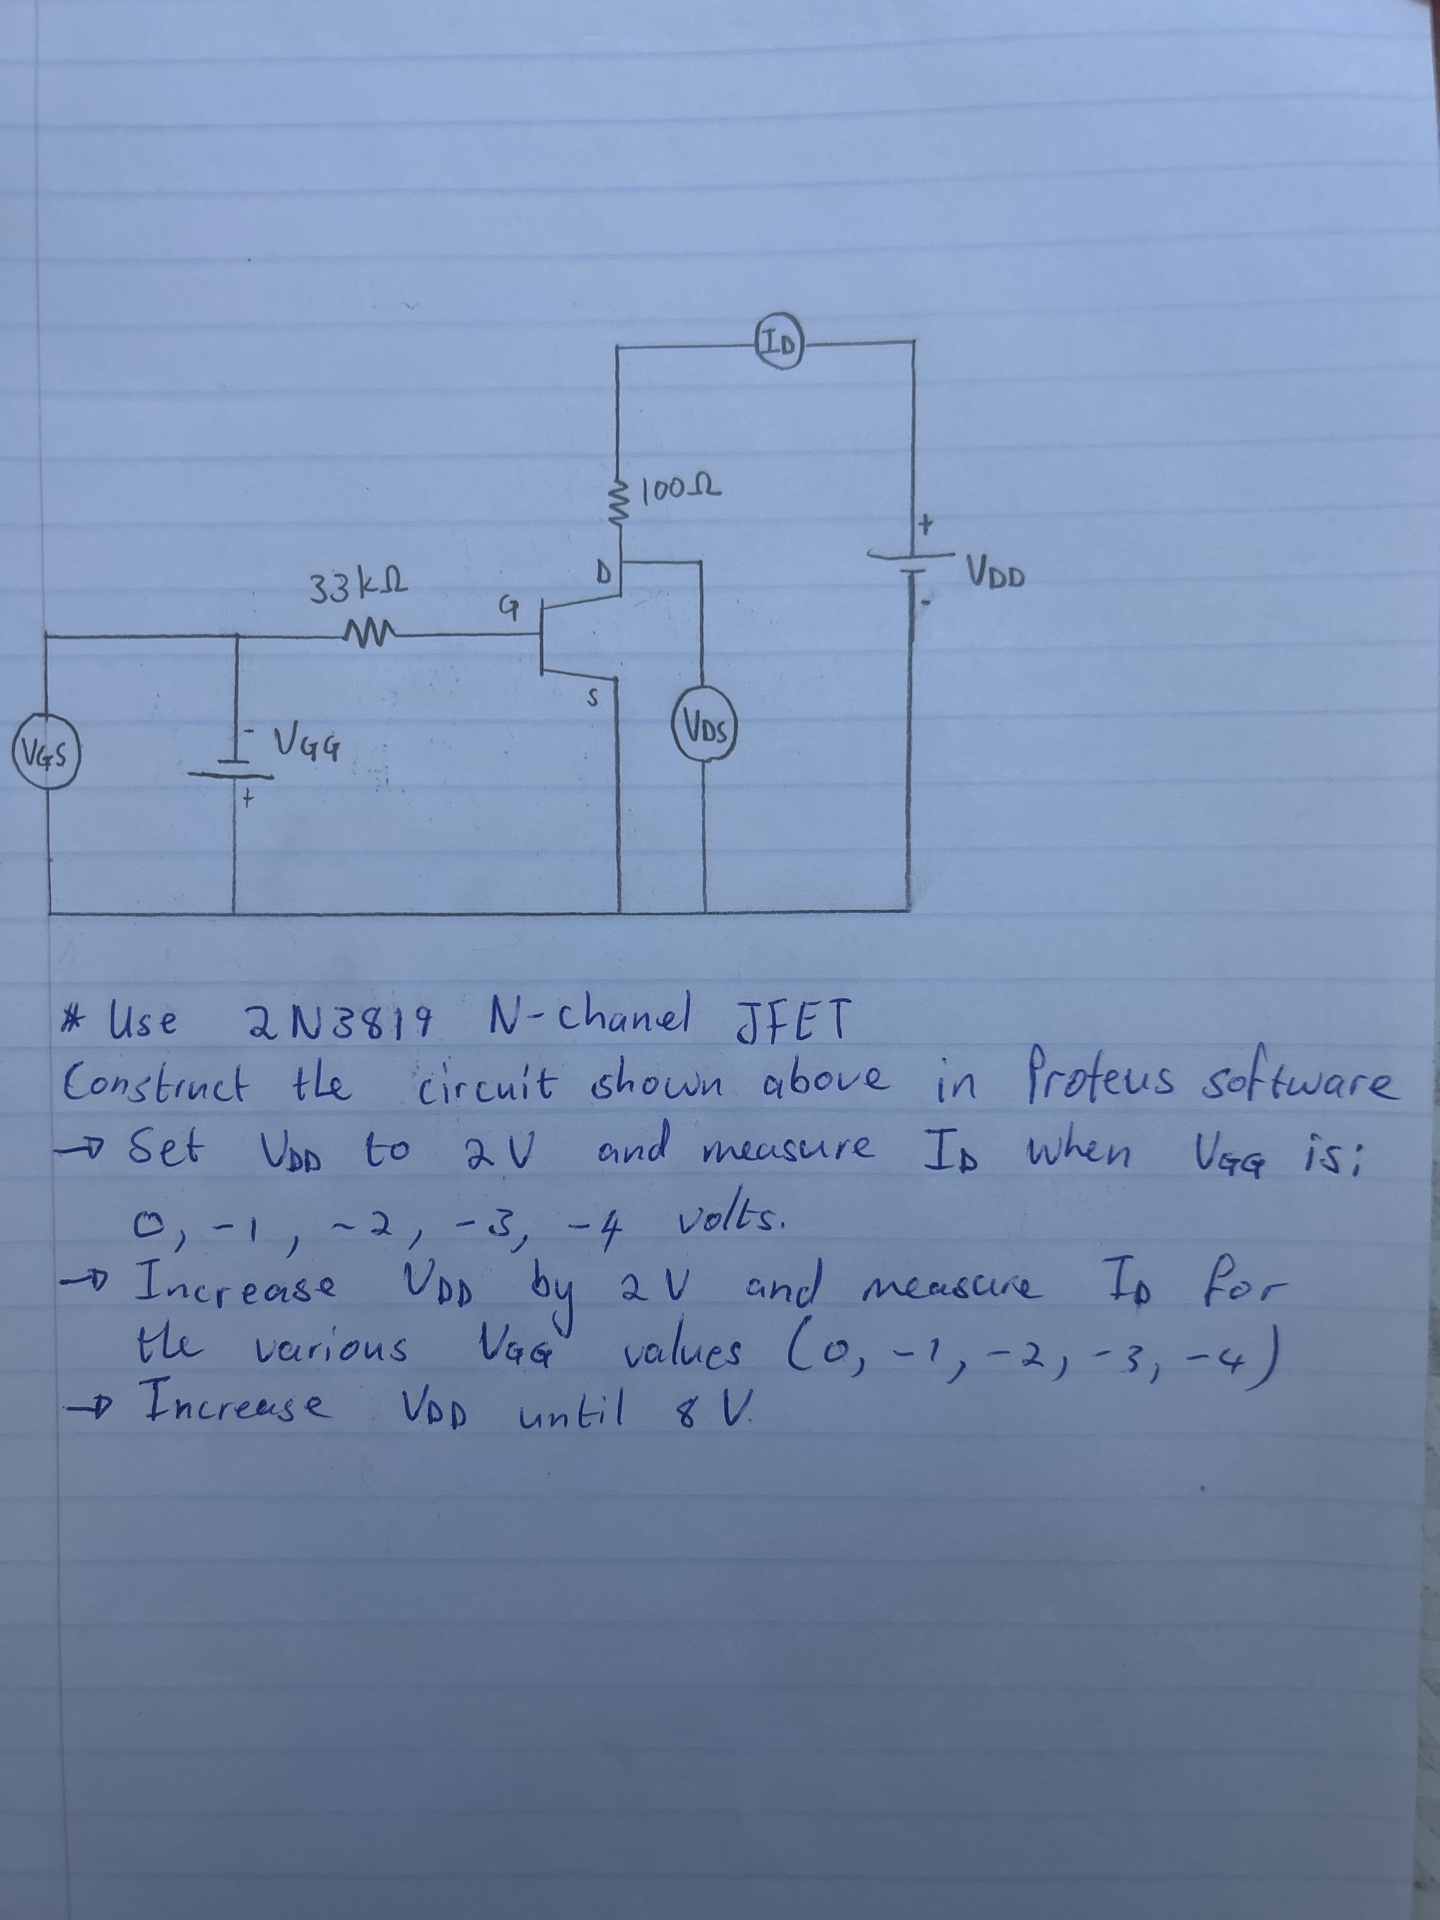 ID
100Ω
+
VDD
-
33kΩ
D
G
S
VGS
-
VGG
+
VDS
* Use 2N3819 N-chanel JFET
Construct the circuit shown above in Proteus software
→ Set VDD to 2V and measure ID when VGG is;
0, -1, -2, -3, -4 volts.
→ Increase VDD by 2V and measure ID for
the various VGG values (0, -1, -2, -3, -4)
→ Increase VDD until 8V.